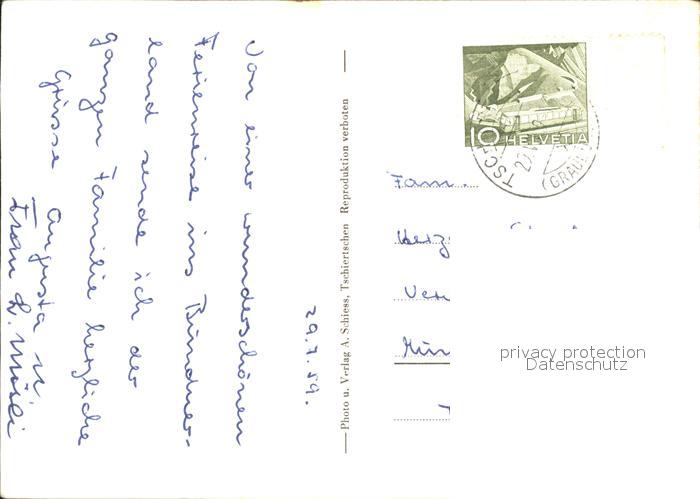 29.7.59.
Von einer wunderschönen
Ferienreise ins Bündner-
land sende ich der
ganzen Familie herzliche
Grüsse Augusta u.
Frau L.
Photo u. Verlag A. Schiess, Tschiertschen Reproduktion verboten
10 HELVETIA
(GRAUB
Fam.
privacy protection
Datenschutz